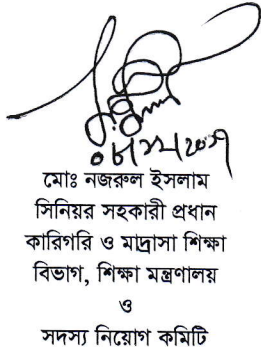 মোঃ নজরুল ইসলাম
সিনিয়র সহকারী প্রধান
কারিগরি ও মাদ্রাসা শিক্ষা
বিভাগ, শিক্ষা মন্ত্রণালয়
ও
সদস্য নিয়োগ কমিটি